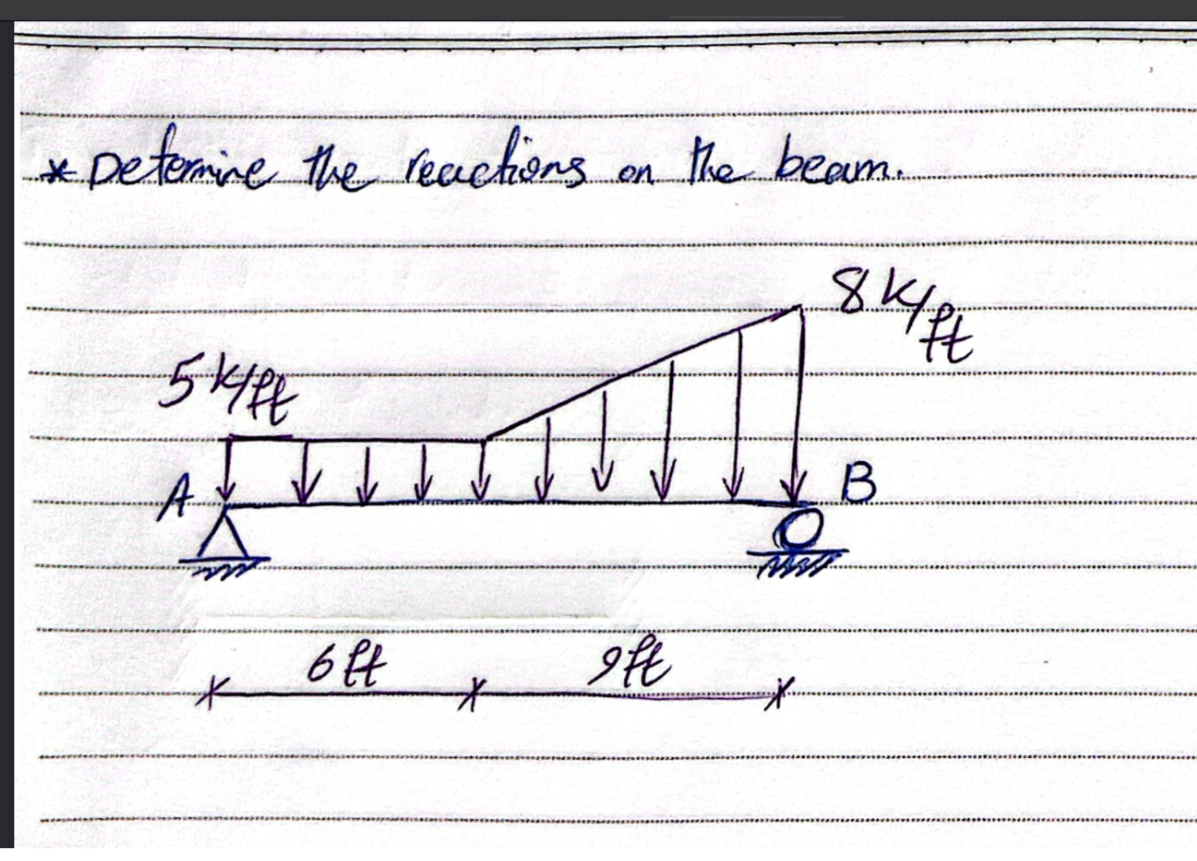 * Detemine the reactions on the beam.
8 k/ft
5 k/ft
A
B
6 ft
9 ft